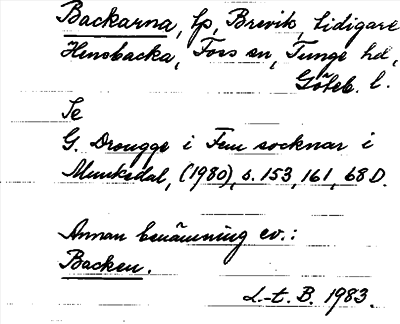 Backarna, lp, Brevik, tidigare
Hensbacka, Foss sn, Tunge hd,
Göteb. l.
Se
G. Drougge i Fem socknar i
Munkedal, (1980), s. 153, 161, 68 D.
Annan benämning ev.:
Backen.
L-t. B. 1983.